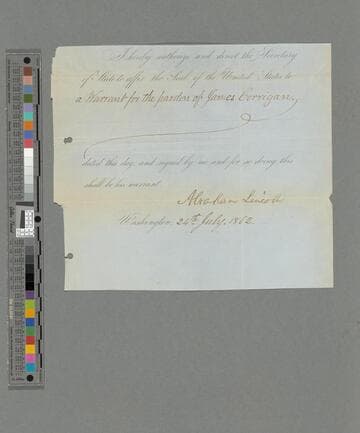 I hereby authorize and direct the Secretary
of State to affix the Seal of the United States to
a Warrant for the pardon of James Corrigan,
dated this day, and signed by me and for so doing this
shall be his warrant.
Abraham Lincoln
Washington, 24th July, 1862.